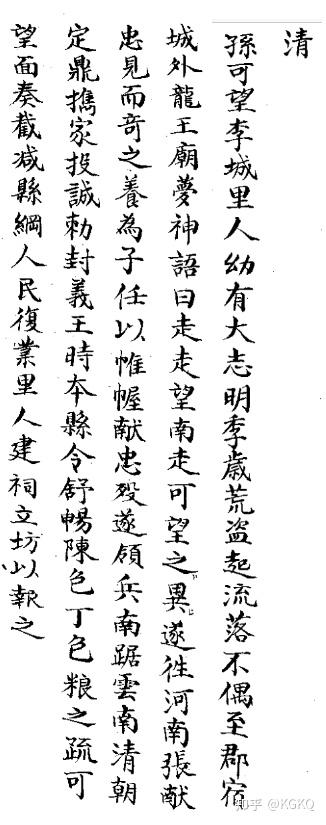 清
孫可望李城里人幼有大志明季歳荒盗起流落不偶至郡宿
城外龍王廟夢神語曰走走望南走可望之異遂徃河南張献
忠見而竒之養為子任以帷幄献忠殁遂領兵南踞雲南清朝
定鼎携家投誠勅封義王時本縣令舒暢陳色丁色粮之疏可
望面奏截减縣綱人民復業里人建祠立坊以報之
知乎 @KGKQ